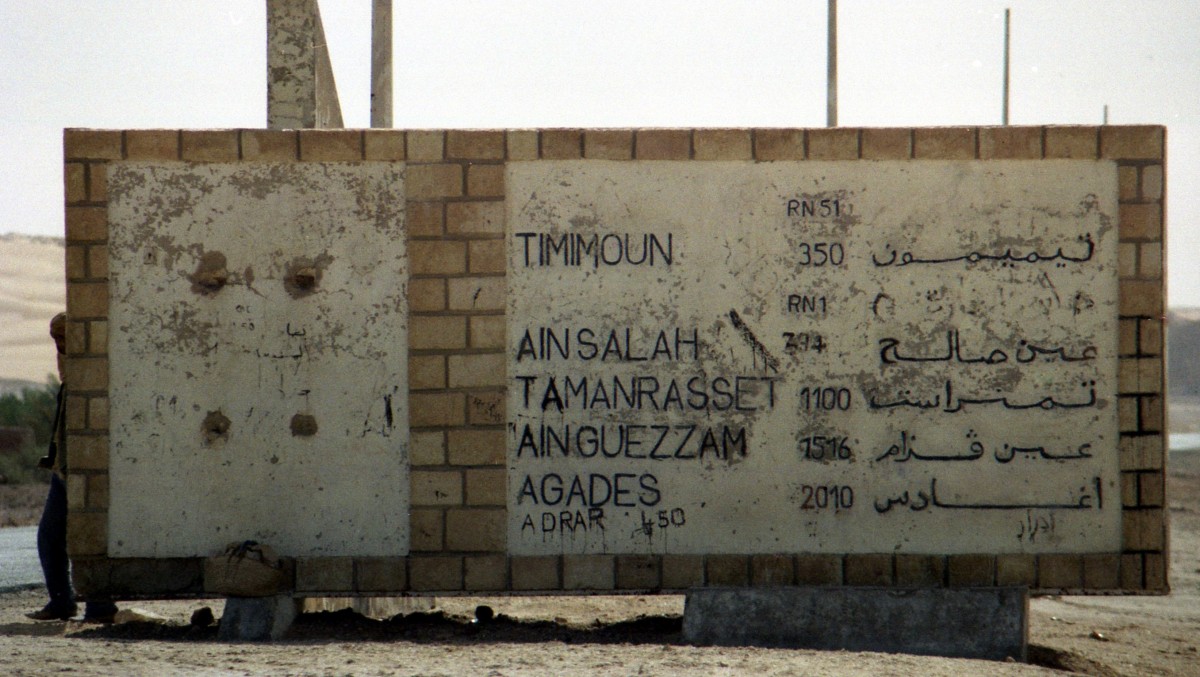 RN 51
TIMIMOUN 350 تيميمون
RN 1
AIN SALAH 794 عين صالح
TAMANRASSET 1100 تمنراست
AIN GUEZZAM 1516 عين ڤزام
AGADES 2010 اغادس
ADRAR 450 ادرار